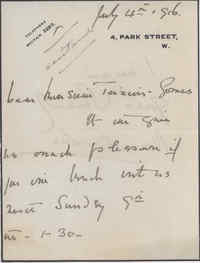 TELEPHONE
MAYFAIR
July 4th 1916.
4, PARK STREET,
W.
Dear
It will give
us much pleasure if
you will lunch with us
next Sunday 9th
at 1-30-